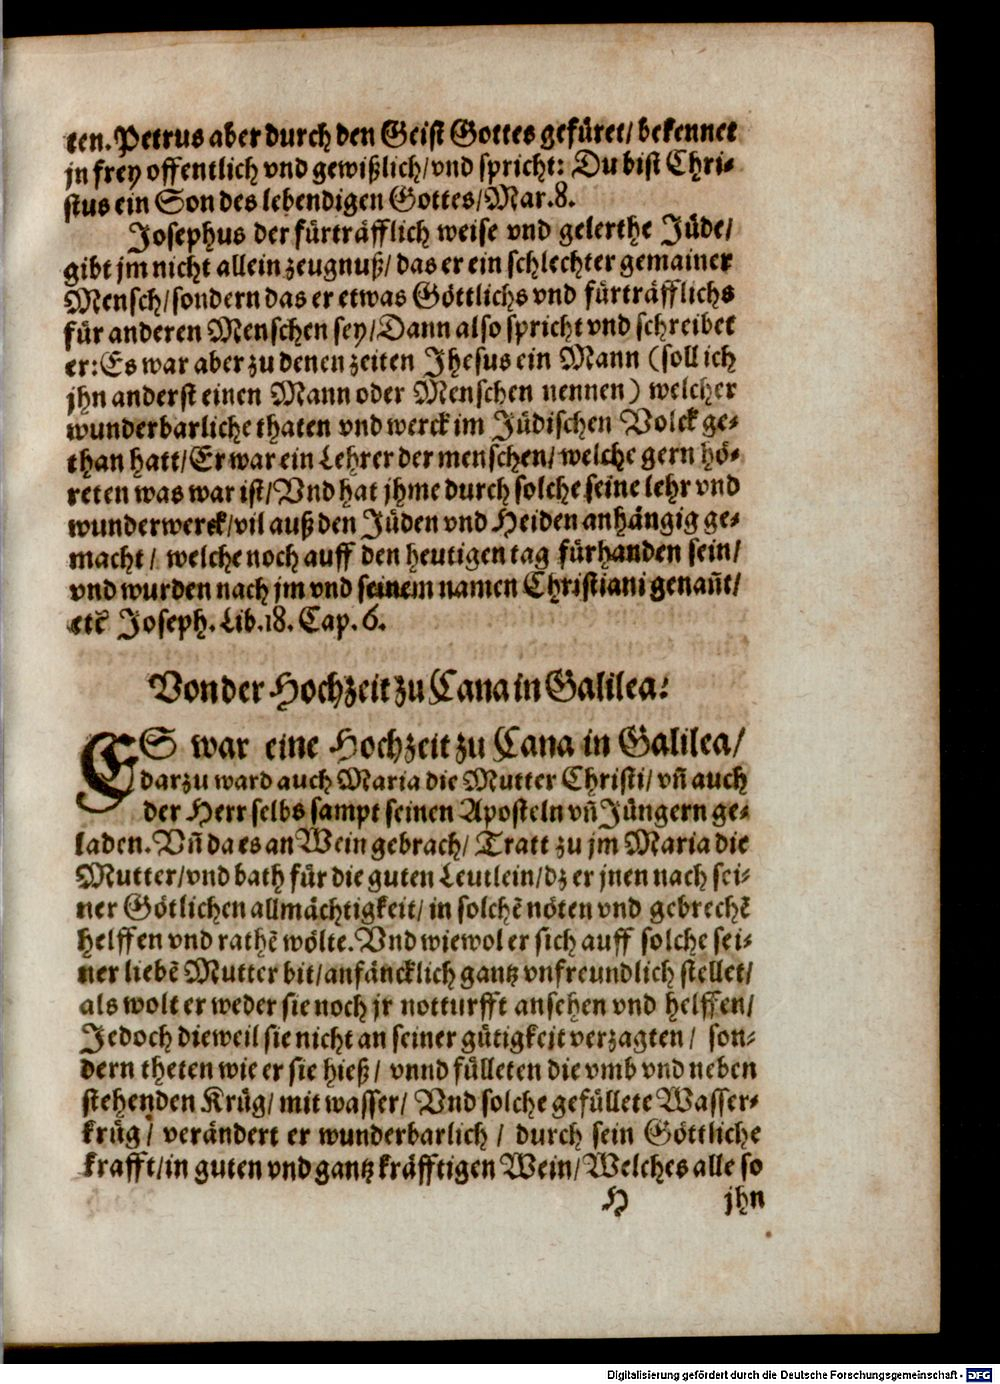 ten. Petrus aber durch den Geist Gottes gefüret/ bekennet
jn frey offentlich vnd gewißlich/ vnd spricht: Du bist Chri-
stus ein Son des lebendigen Gottes/ Mar. 8.
Josephus der fürträfflich weise vnd gelerthe Jüde/
gibt jm nicht allein zeugnuß/ das er ein schlechter gemainer
Mensch/ sondern das er etwas Göttlichs vnd fürträfflichs
für anderen Menschen sey/ Dann also spricht vnd schreibet
er: Es war aber zu denen zeiten Jhesus ein Mann (soll ich
jhn anderst einen Mann oder Menschen nennen) welcher
wunderbarliche thaten vnd werck im Jüdischen Volck ge-
than hatt/ Er war ein Lehrer der menschen/ welche gern hö-
reten was war ist/ Vnd hat jhme durch solche seine lehr vnd
wunderwerck/ vil auß den Jüden vnd Heiden anhängig ge-
macht/ welche noch auff den heutigen tag fürhanden sein/
vnd wurden nach jm vnd seinem namen Christiani genañt/
etc̄ Joseph. Lib. 18. Cap. 6.
Von der Hochzeit zu Cana in Galilea:
ES war eine Hochzeit zu Cana in Galilea/
darzu ward auch Maria die Mutter Christi/ vñ auch
der Herr selbs sampt seinen Aposteln vñ Jüngern ge-
laden. Vñ da es an Wein gebrach/ Tratt zu jm Maria die
Mutter/ vnd bath für die guten Leutlein/ dz er jnen nach sei-
ner Götlichen allmächtigkeit/ in solchē nöten vnd gebrechē
helffen vnd rathē wölte. Vnd wiewol er sich auff solche sei-
ner liebē Mutter bit/ anfäncklich gantz vnfreundlich stellet/
als wolt er weder sie noch jr notturfft ansehen vnd helffen/
Jedoch dieweil sie nicht an seiner gütigkeit verzagten/ son-
dern theten wie er sie hieß/ vnnd fülleten die vmb vnd neben
stehenden Krüg/ mit wasser/ Vnd solche gefüllete Wasser-
krüg/ verändert er wunderbarlich/ durch sein Göttliche
krafft/ in guten vnd gantz kräfftigen Wein/ Welches alle so
H jhn
Digitalisierung gefördert durch die Deutsche Forschungsgemeinschaft - DFG